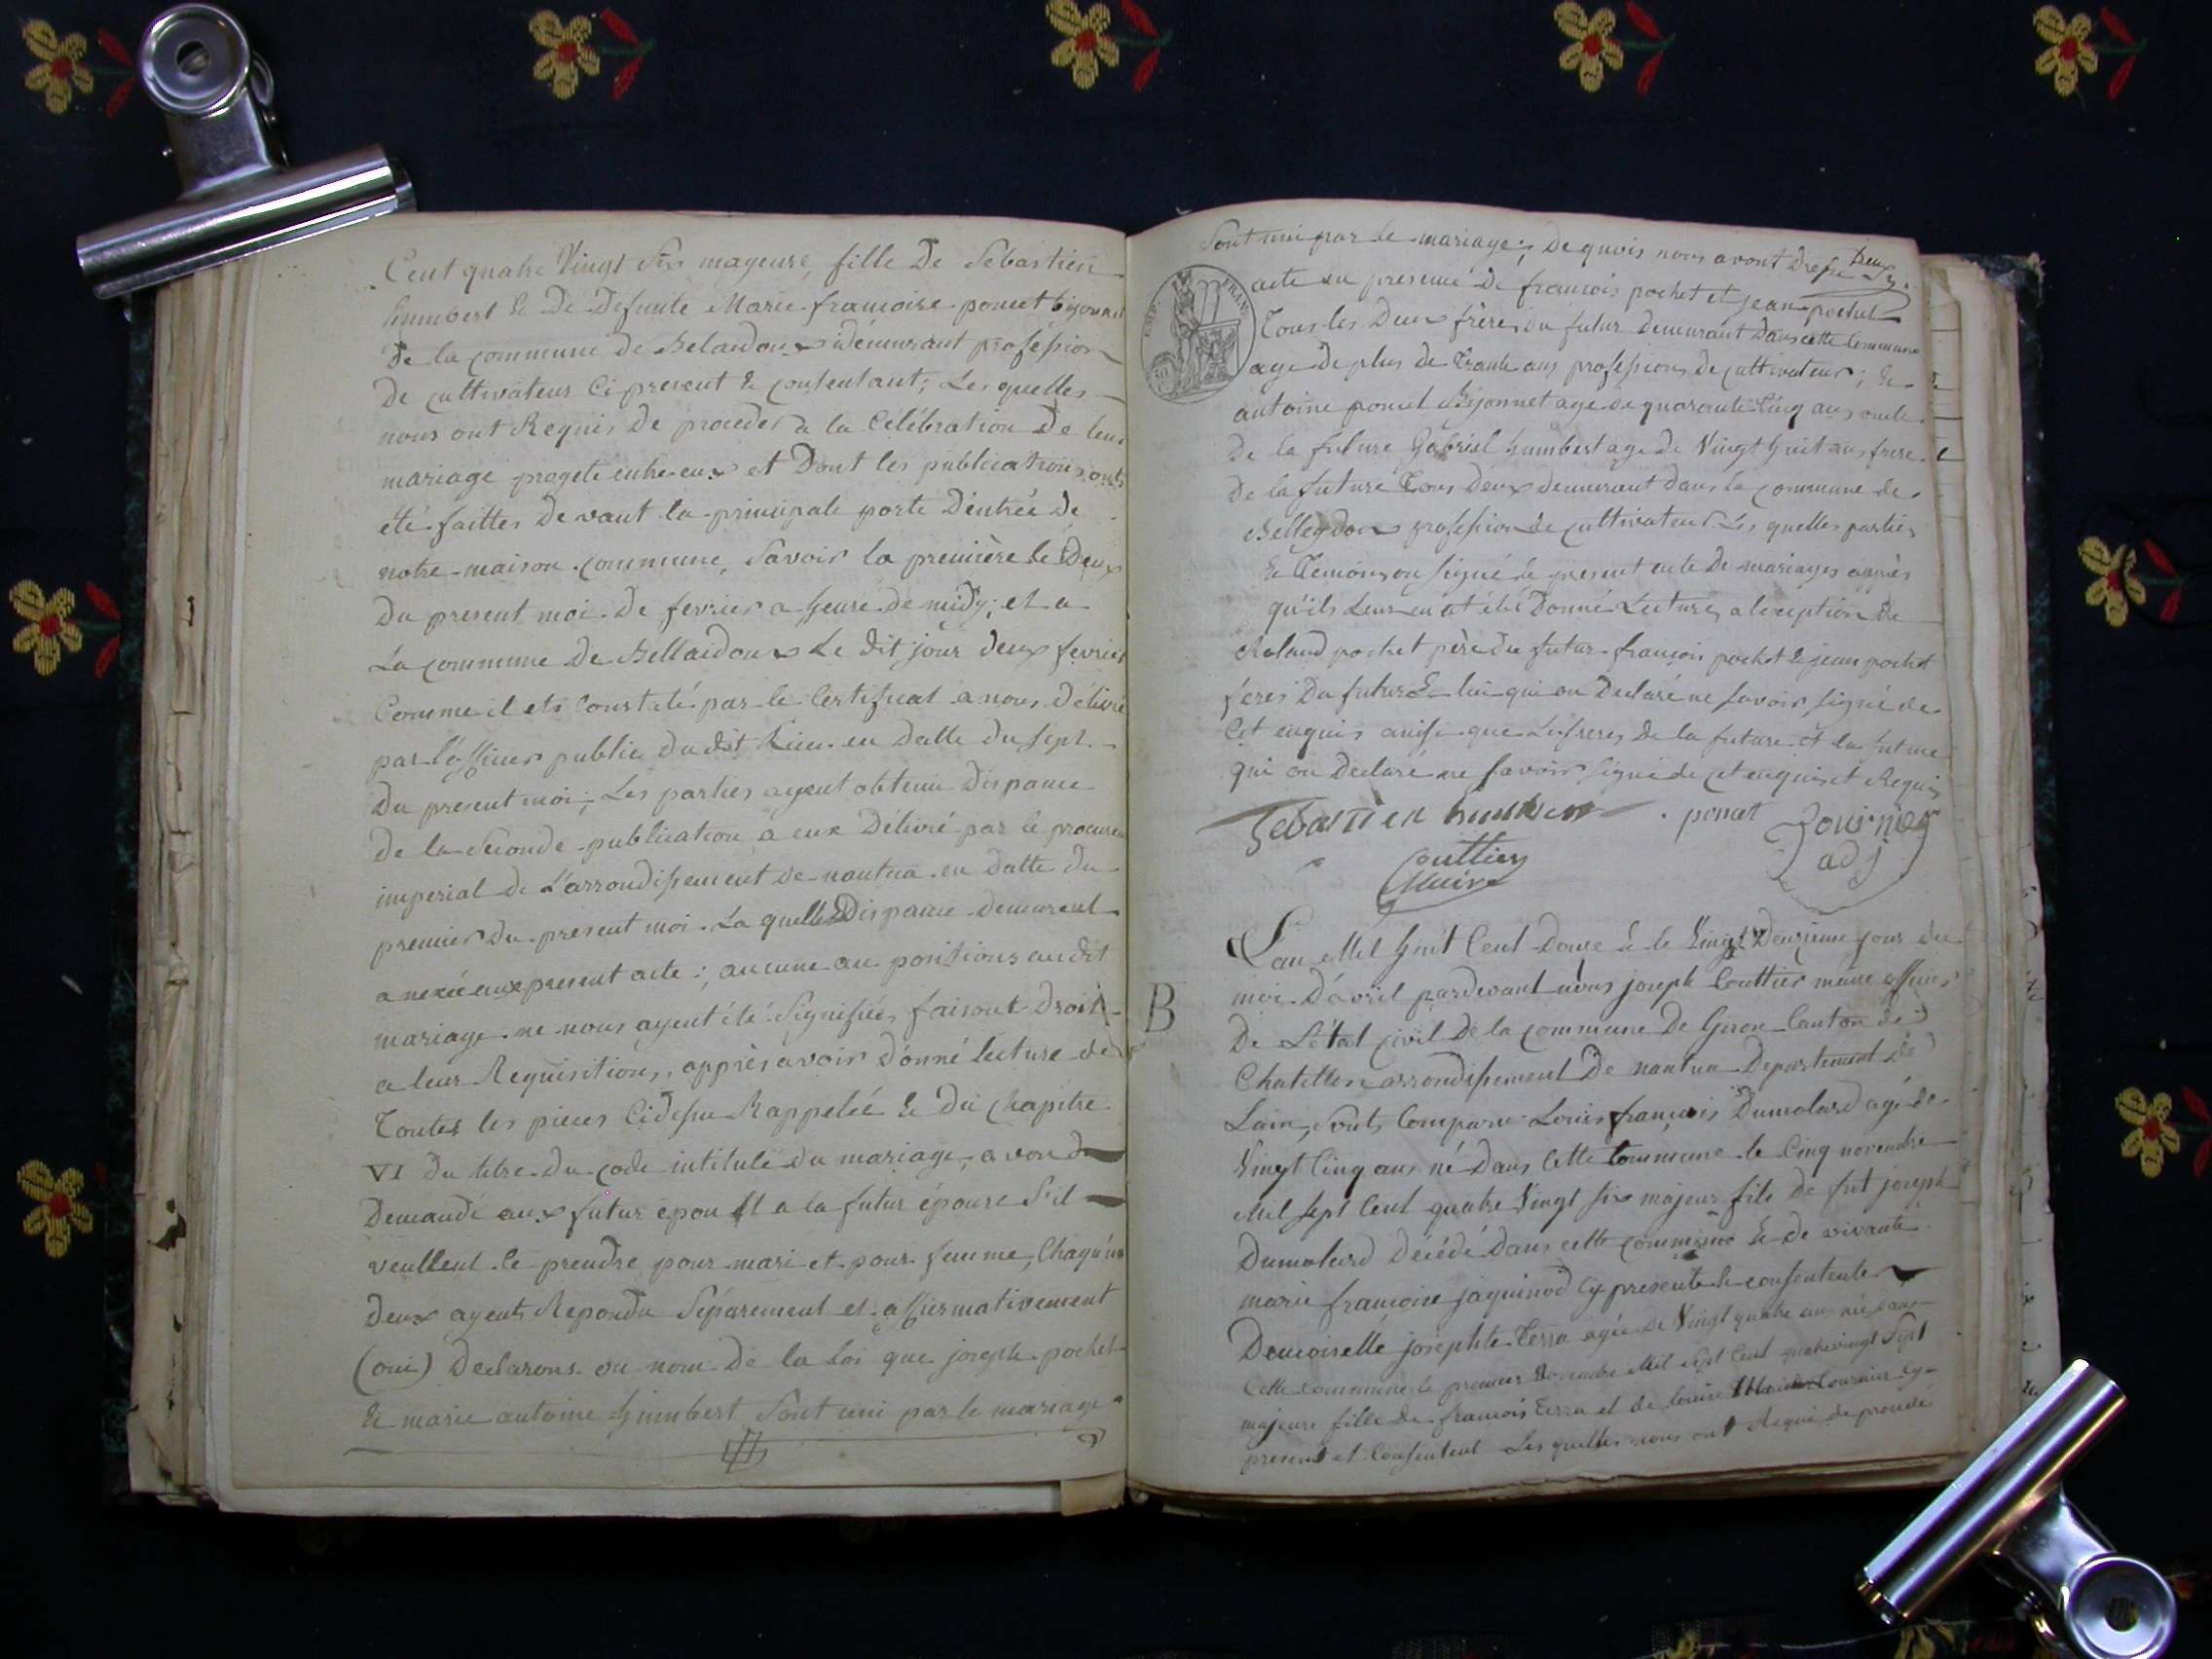 Cent quatre Vingt Six mageure, fille De Sebastien
humbert & De Defunte Marie francoise poncet bijonnet
De la commune de Belaidoux idémeurant proféssion
De cultivateur Ci present & consentant; Les quelles
nous ont Requis De proceder a la Célébration De leur
mariage progeté entre eux et Dont les publications onts
été faittes Devant la principale porte D'entrée de
notre maison commune, Savoir la première le Deux
Du present moi De fevrier a heure de midy; et a
La commune De Bellaidoux Le dit jour deux fevrier
Comme il ets Constaté par le Certificat a nous Délivré
par l'officier public du dit Lieu en Datte du sept
Du present moi; Les parties ayent obtenu Dispance
De la Seconde publication a eux Délivré par le procureur
imperial de L'arrondissement de nantua en datte du
premier Du present moi. La quelle Dispance demeurent
anexée aux present acte; aucune au positions audit
mariage ne nous ayent été Signifiés, faisont Droit
a leur Requisitions, apprès avoir D'onné lecture de
Toutes les pieces Cidessu Rappeléé & Du Chapitre
VI Du titre Du code intitulé du mariage, avon de
Demandé aux futur epou et a la futur épouse S'il
veullent le prendre pour mari et pour femme, Chaqu'un
Deux ayents Repondu Séparement et affirmativement
(oui) Declarons au nom De la Loi que joseph pochet
& marie antoine humbert Sont uni par le mariage
Sont uni par le mariage; De quois nous avont Dressé
Deux
acte en presence De francois pochet et jean pochet
Tous les Deux frères du futur demeurant Dans cette Commune
age De plus de Trante ans professions de cultivateur; &
antoine poncet Bijonnet age de quaroute Cinq ans oncle
De la future Gabriel humbert age De Vingt huit ans frere
De la future Tous Deux demeurant dans la commune de
Bellegdoux profession de cultivateur Les quelles parties
& Temoins on signé le present acte De mariages apprès
qu'ils Leur en at été Donné Lecture, a lexception De
Roland pochet père Du futur francois pochet & jean pochet
freres Du futur & lui qui on Declaré ne savoir signé de
Cet enquis ainsi que Les freres De la future et la future
qui on Declaré ne savoir signé de cet enquis et Requis
Sebastien humbert poncet Tournier
Couttier adj
Maire
B
L'an Mil huit Cent Douze & le Vingt Deuxieme jour du
moi D'avril pardevant nous joseph Couttier maire officier
De L'état civil De la commune De Giron Canton de
Chatillon arrondissement De nantua Departement de
Lain, Sonts Comparu Louis françois Dumolard agé de
Vingt Cinq ans né Dans Cette Commune le Cinq novembre
Mil sept Cent quatre Vingt six majeur fils De fut joseph
Dumolard Décédé Dans cette commune & de vivante
marie francoise jaquinod Cy presente & consentente
Demoisellé joséphte Terra agée De Vingt quatre ans née dans
Cette commune le premier Novembre Mil sept Cent quatrevingt Sept
majeure fille de francois Terra et de louise Tournier Cy
present et Consentent Les quelles nous ont Requi de procede